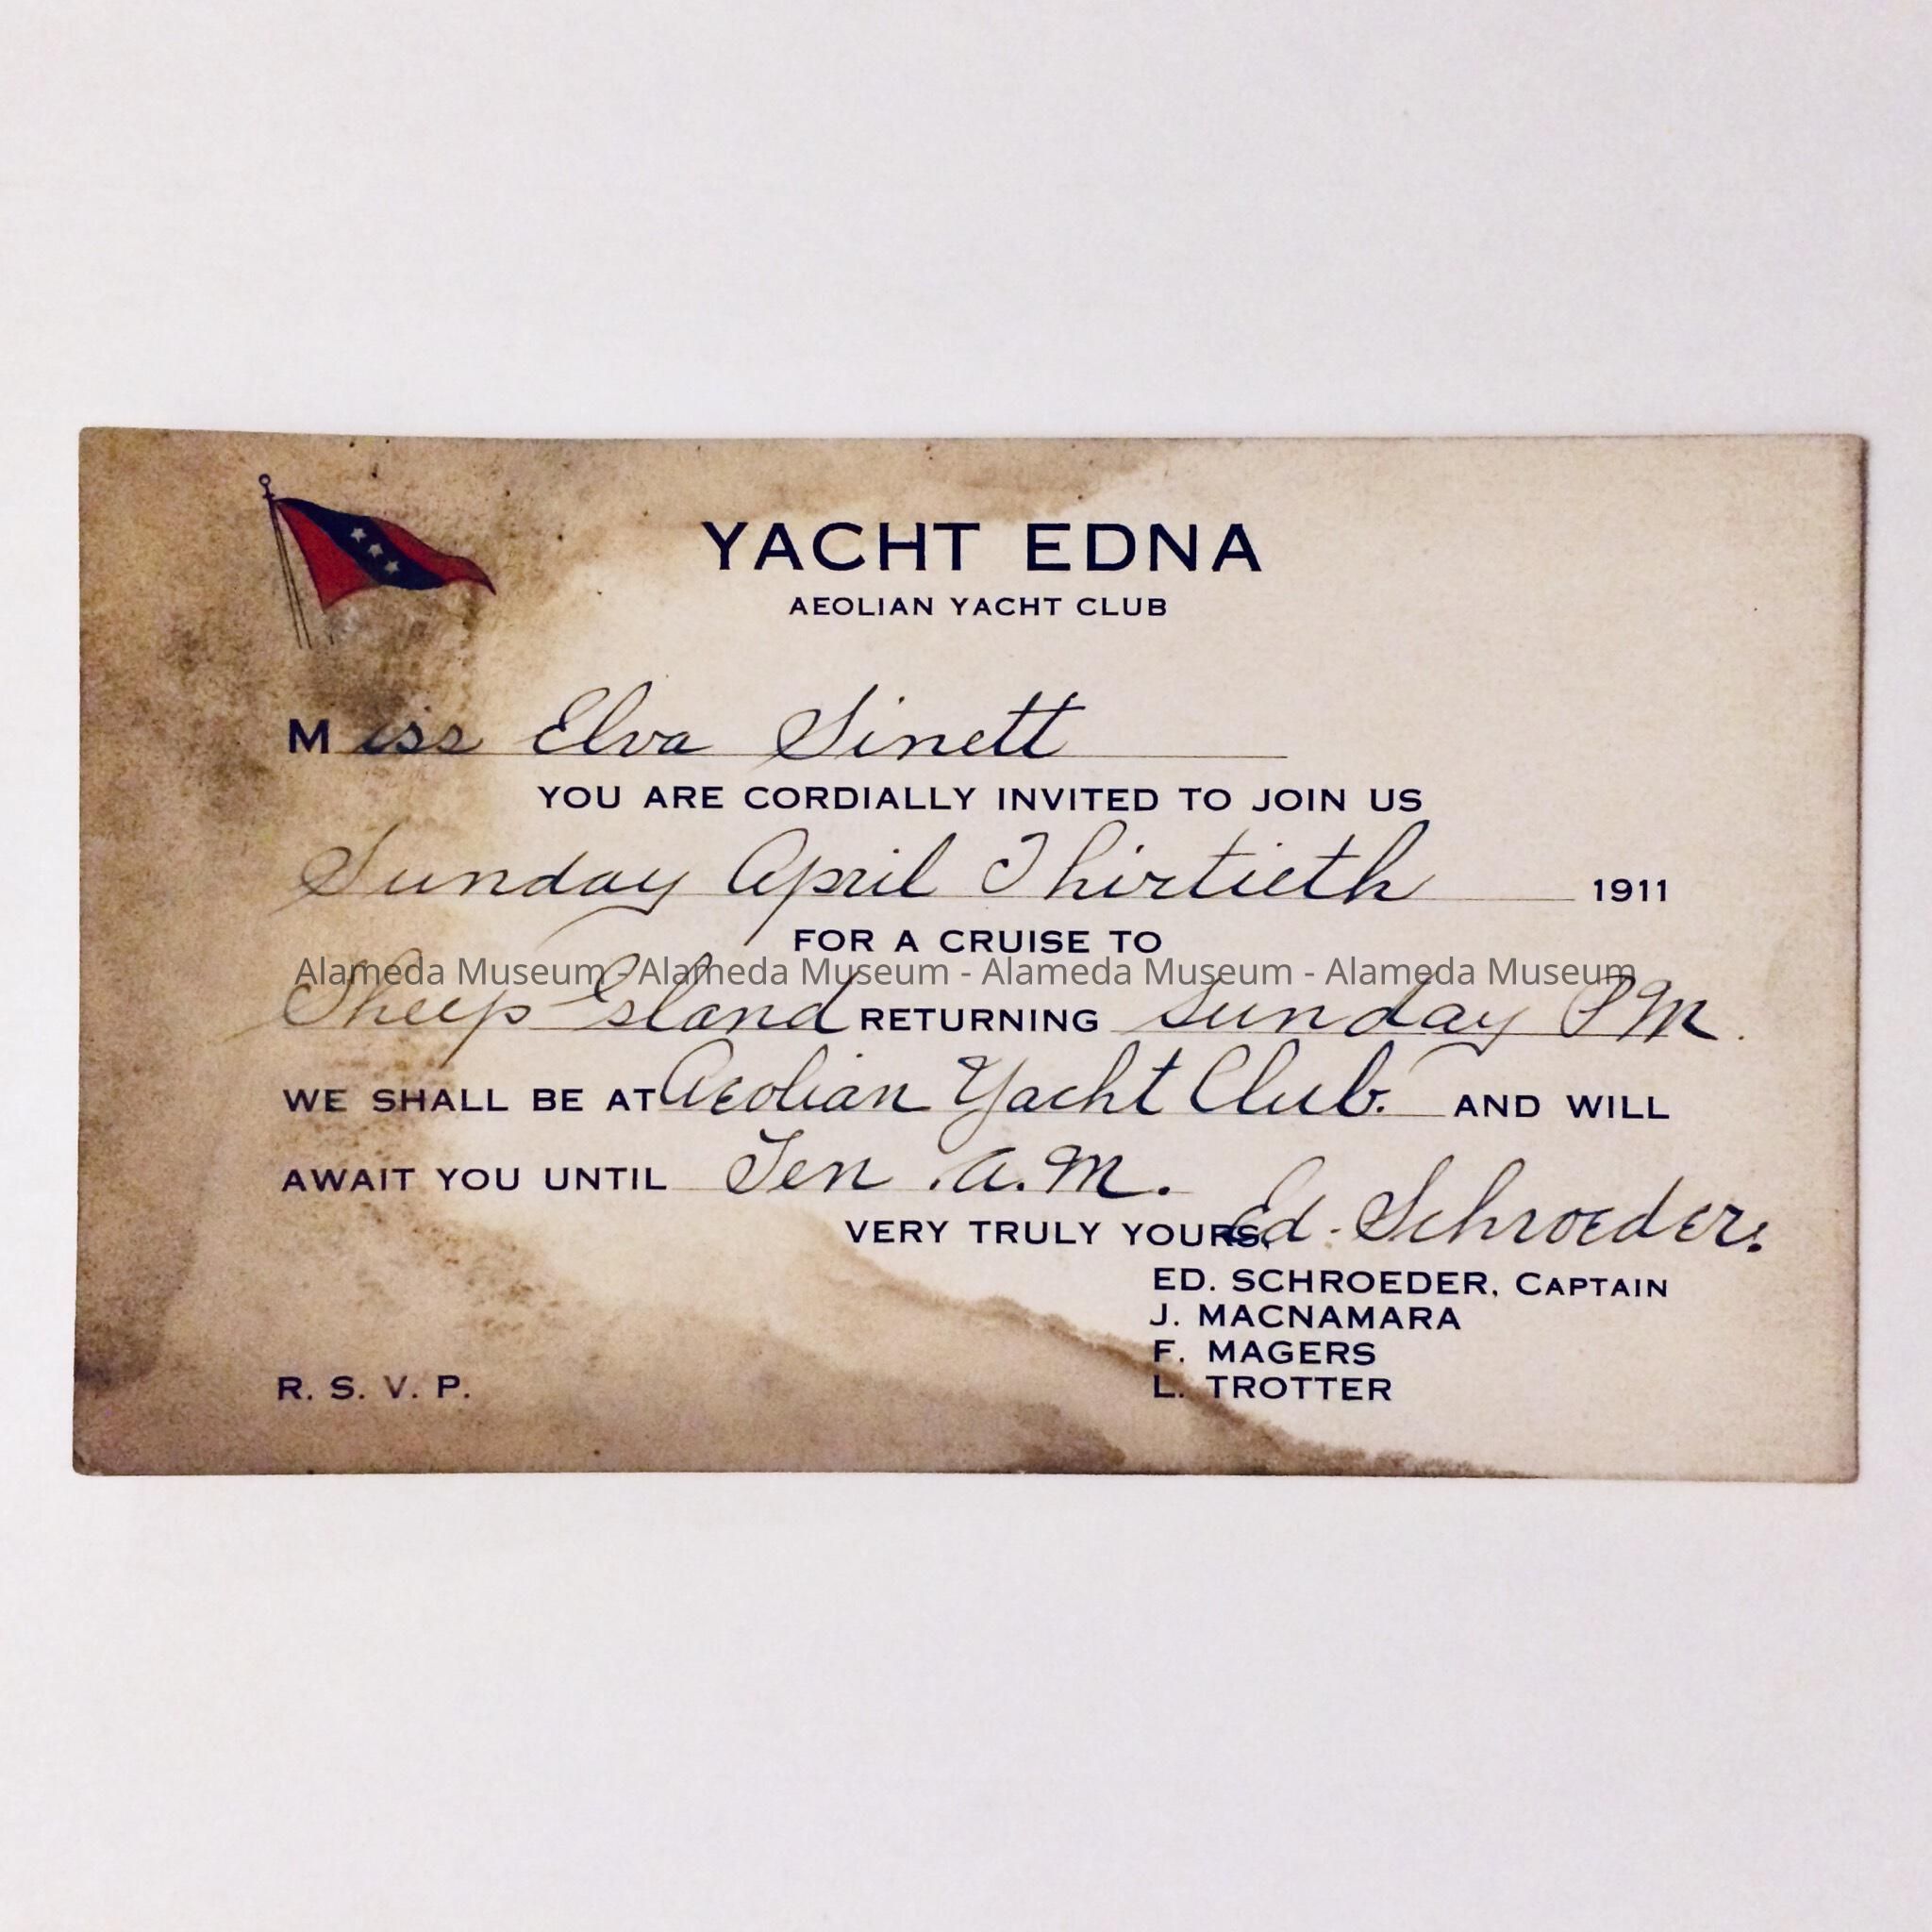 YACHT EDNA
AEOLIAN YACHT CLUB
Miss Elva Sinett
YOU ARE CORDIALLY INVITED TO JOIN US
Sunday April Thirtieth 1911
FOR A CRUISE TO
Alameda Museum - Alameda Museum - Alameda Museum - Alameda Museum
Sheep Island RETURNING Sunday PM.
WE SHALL BE AT Aeolian Yacht Club. AND WILL
AWAIT YOU UNTIL Ten A.M.
VERY TRULY YOURS, Ed. Schroeder.
ED. SCHROEDER, CAPTAIN
J. MACNAMARA
F. MAGERS
L. TROTTER
R. S. V. P.